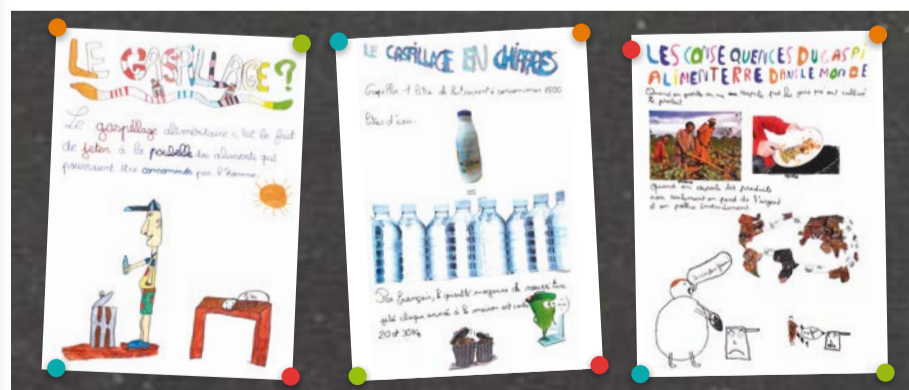 LE GASPILLAGE?
Le gaspillage alimentaire c'est le fait
de jeter à la poubelle des aliments qui
pourraient être consommés par l'homme.
LE GASPILLAGE EN CHIFFRES
Gaspiller 1 litre de lait revient à consommer 1000
litres d'eau.
Par français, la quantité moyenne de nourriture
jeté chaque année à la maison est entre
20 et 30 kg
LES CONSEQUENCES DU GASPI
ALIMENTERRE DANS LE MONDE
Quand on gaspille on ne respecte pas les gens qui ont cultivé
le produit
Quand on des produits
non seulement on perd de l'argent
et on pollue